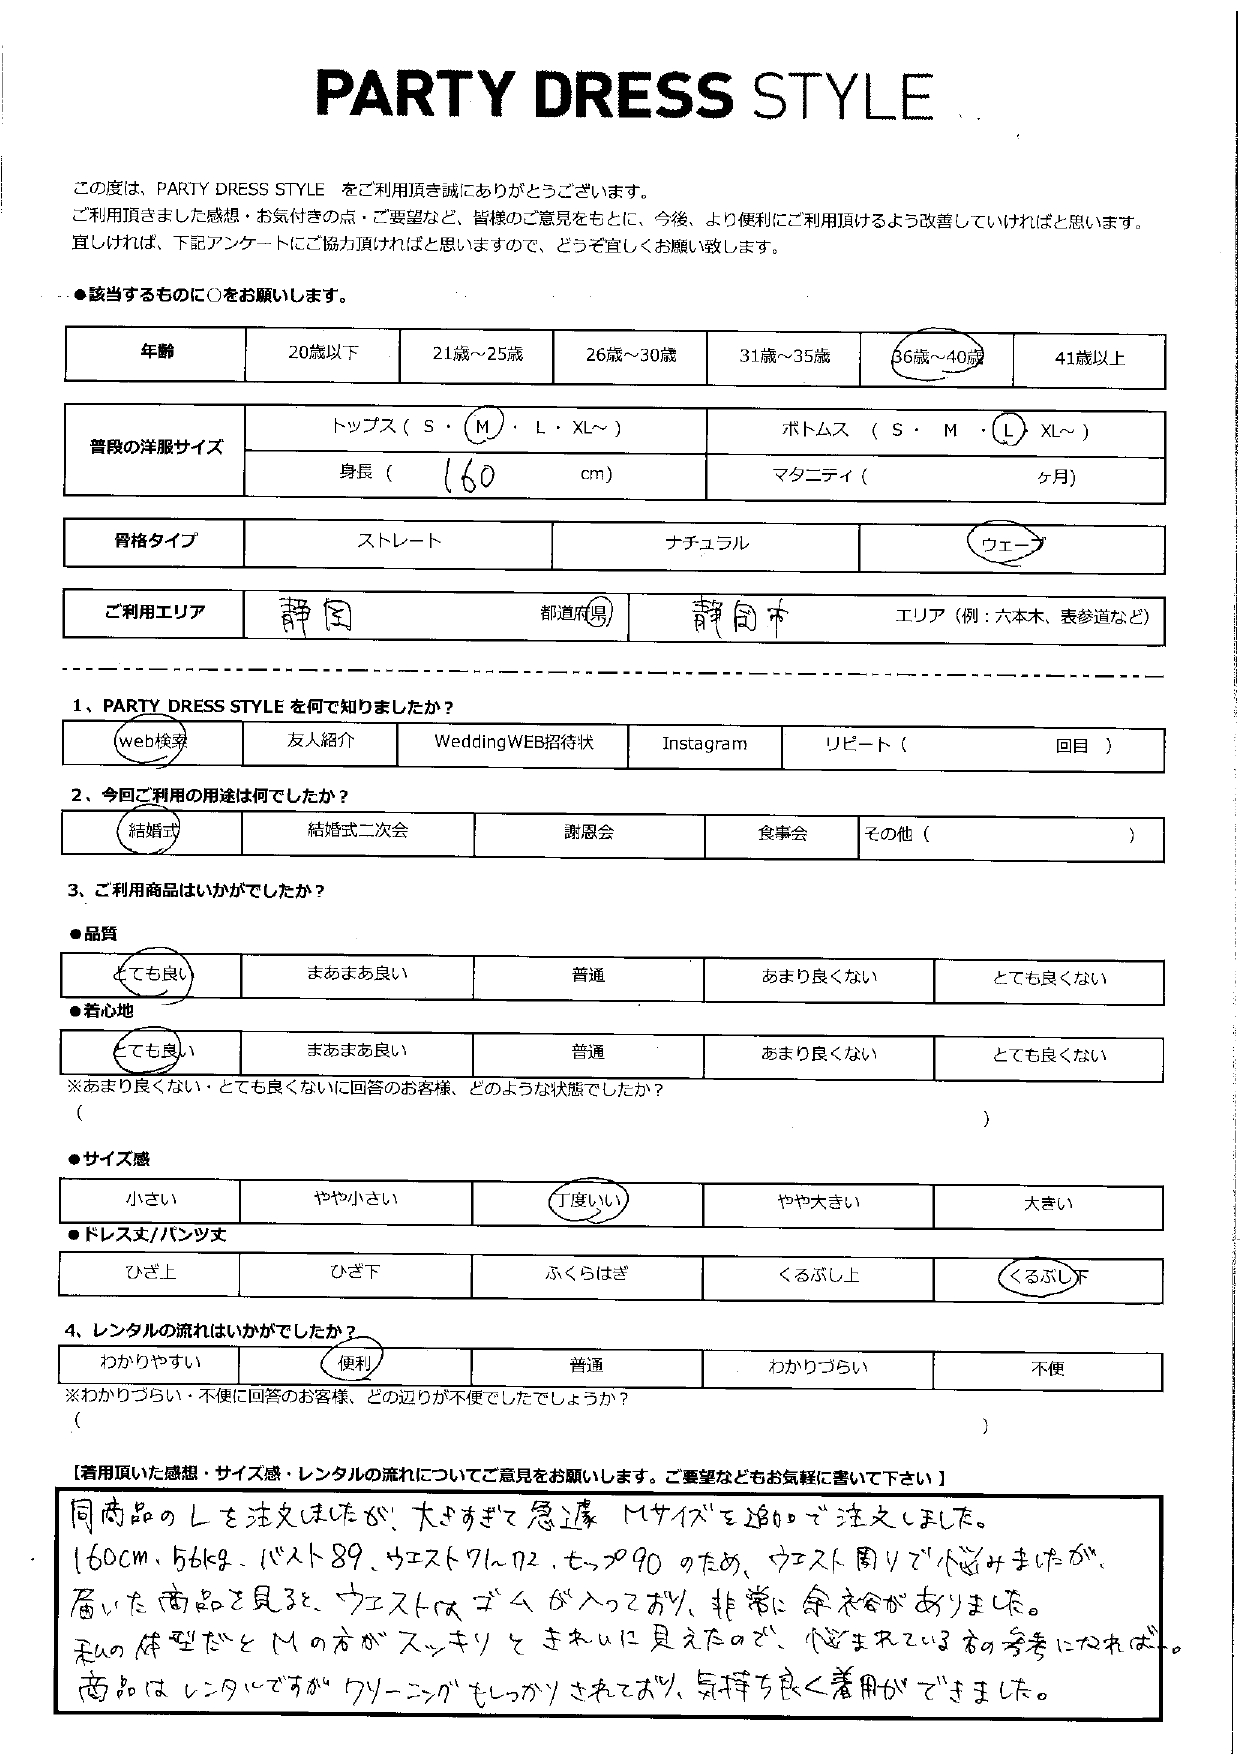 PARTY DRESS STYLE
この度は、PARTY DRESS STYLE をご利用頂き誠にありがとうございます。
ご利用頂きました感想・お気付きの点・ご要望など、皆様のご意見をもとに、今後、より便利にご利用頂けるよう改善していければと思います。
宜しければ、下記アンケートにご協力頂ければと思いますので、どうぞ宜しくお願い致します。
●該当するものに○をお願いします。
年齢 20歳以下 21歳～25歳 26歳～30歳 31歳～35歳 36歳～40歳 41歳以上
普段の洋服サイズ トップス ( S ・ M ・ L ・ XL～ ) ボトムス ( S ・ M ・ L ・ XL～ )
身長 ( 160 cm) マタニティ ( ヶ月)
骨格タイプ ストレート ナチュラル ウェーブ
ご利用エリア 静岡 都道府県 静岡市 エリア（例：六本木、表参道など）
1、PARTY DRESS STYLE を何で知りましたか？
web検索 友人紹介 WeddingWEB招待状 Instagram リピート ( 回目 )
2、今回ご利用の用途は何でしたか？
結婚式 結婚式二次会 謝恩会 食事会 その他 ( )
3、ご利用商品はいかがでしたか？
●品質
とても良い まあまあ良い 普通 あまり良くない とても良くない
●着心地
とても良い まあまあ良い 普通 あまり良くない とても良くない
※あまり良くない・とても良くないに回答のお客様、どのような状態でしたか？
( )
●サイズ感
小さい やや小さい 丁度いい やや大きい 大きい
●ドレス丈/パンツ丈
ひざ上 ひざ下 ふくらはぎ くるぶし上 くるぶし下
4、レンタルの流れはいかがでしたか？
わかりやすい 便利 普通 わかりづらい 不便
※わかりづらい・不便に回答のお客様、どの辺りが不便でしたでしょうか？
( )
【着用頂いた感想・サイズ感・レンタルの流れについてご意見をお願いします。ご要望などもお気軽に書いて下さい】
同商品のLを注文しましたが、大きすぎて急遽Mサイズを追加で注文しました。
160cm、56kg、バスト89、ウエスト71～72、ヒップ90のため、ウエスト周りで悩みましたが、
届いた商品を見ると、ウエストはゴムが入っており、非常に余裕がありました。
私の体型だとMの方がスッキリときれいに見えたので、悩まれている方の参考になれば…。
商品はレンタルですがクリーニングもしっかりされており、気持ち良く着用ができました。